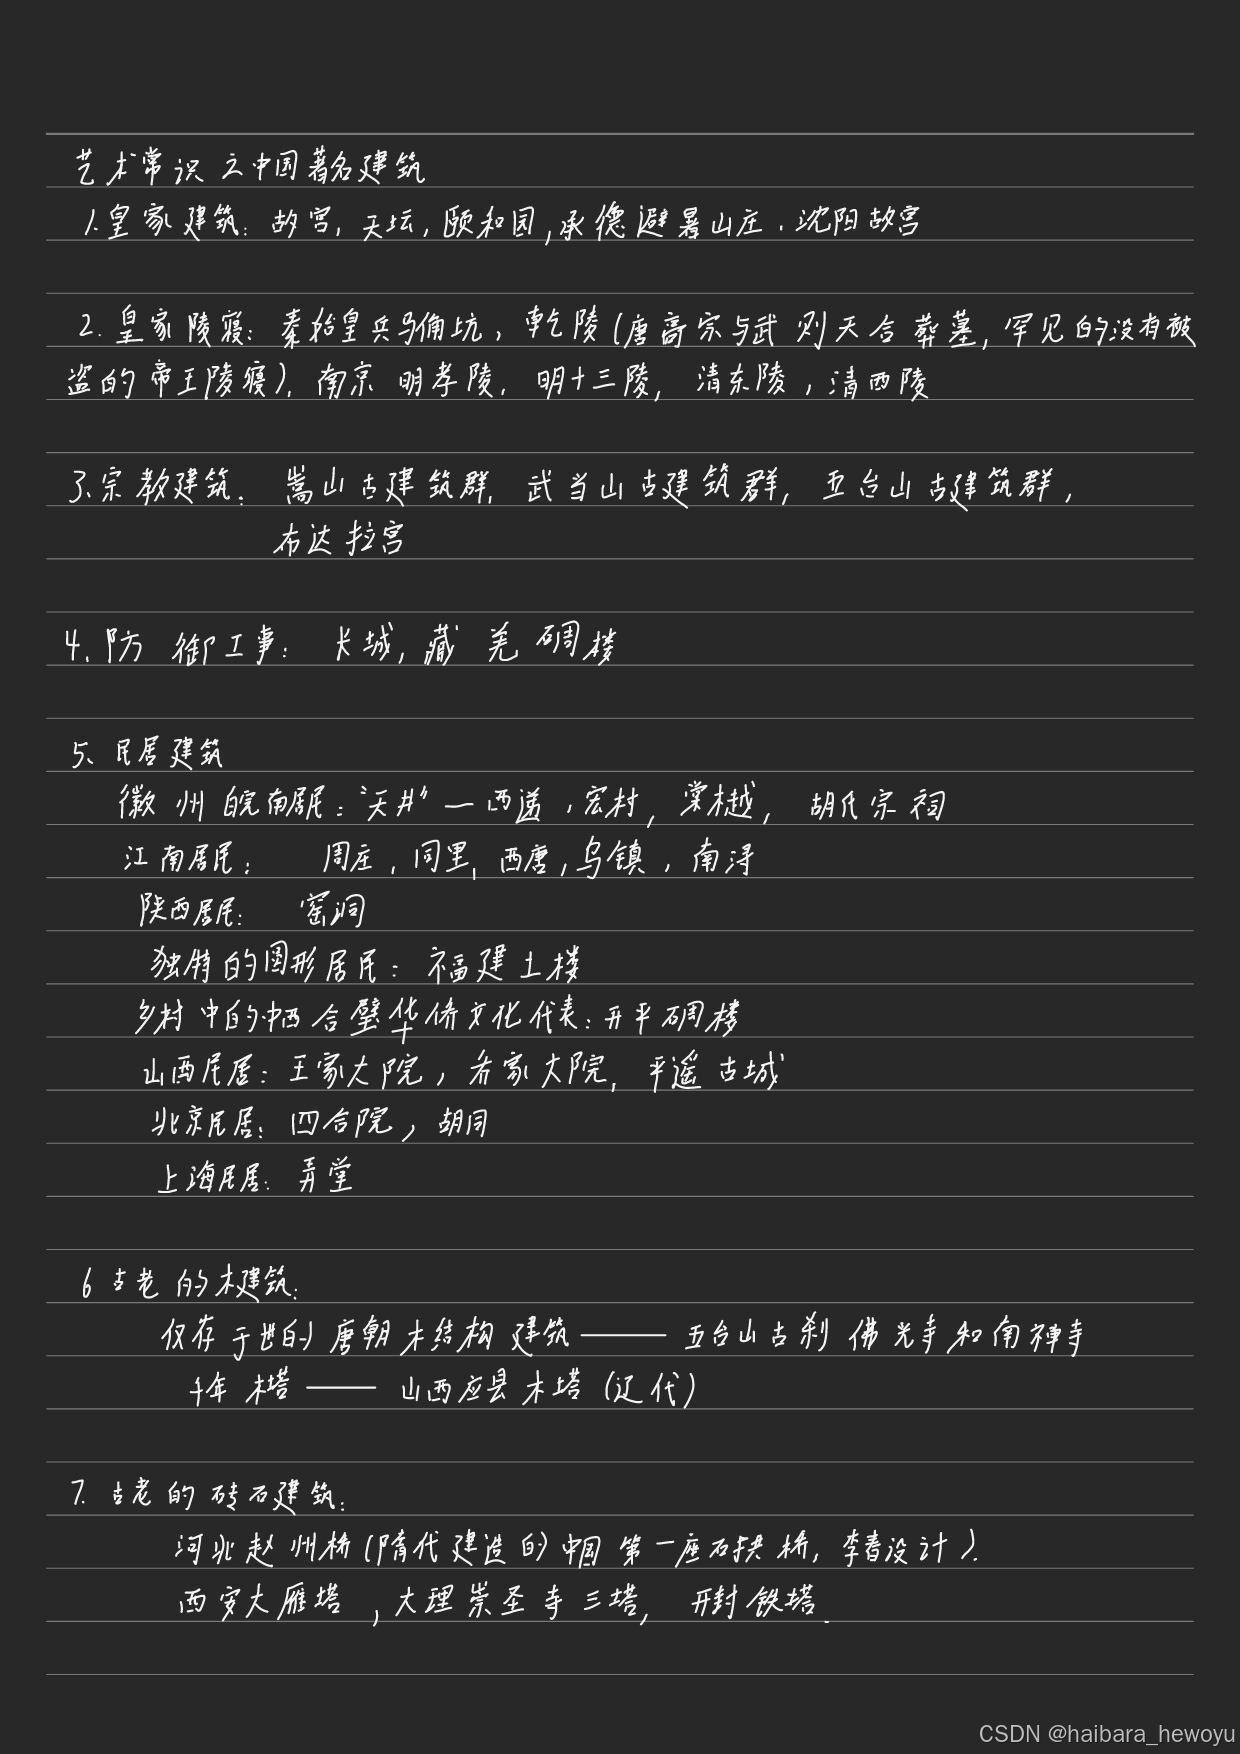 艺术常识之中国著名建筑
1.皇家建筑:故宫,天坛,颐和园,承德避暑山庄.沈阳故宫
2.皇家陵寝:秦始皇兵马俑坑,乾陵(唐高宗与武则天合葬墓,罕见的没有被
盗的帝王陵寝).南京明孝陵.明十三陵,清东陵,清西陵
3.宗教建筑:嵩山古建筑群,武当山古建筑群,五台山古建筑群,
布达拉宫
4.防御工事:长城,藏羌碉楼
5、民居建筑
徽州皖南居民:"天井"—西递,宏村,棠樾,胡氏宗祠
江南居民:周庄,同里,西塘,乌镇,南浔
陕西居民:窑洞
独特的圆形居民:福建土楼
乡村中的中西合璧华侨文化代表:开平碉楼
山西民居:王家大院,乔家大院,平遥古城
北京民居:四合院,胡同
上海民居:弄堂
6古老的木建筑:
仅存于世的唐朝木结构建筑——五台山古刹佛光寺和南禅寺
千年木塔——山西应县木塔(辽代)
7.古老的砖石建筑:
河北赵州桥(隋代建造的中国第一座石拱桥,李春设计).
西安大雁塔,大理崇圣寺三塔,开封铁塔.
CSDN @haibara_hewoyu